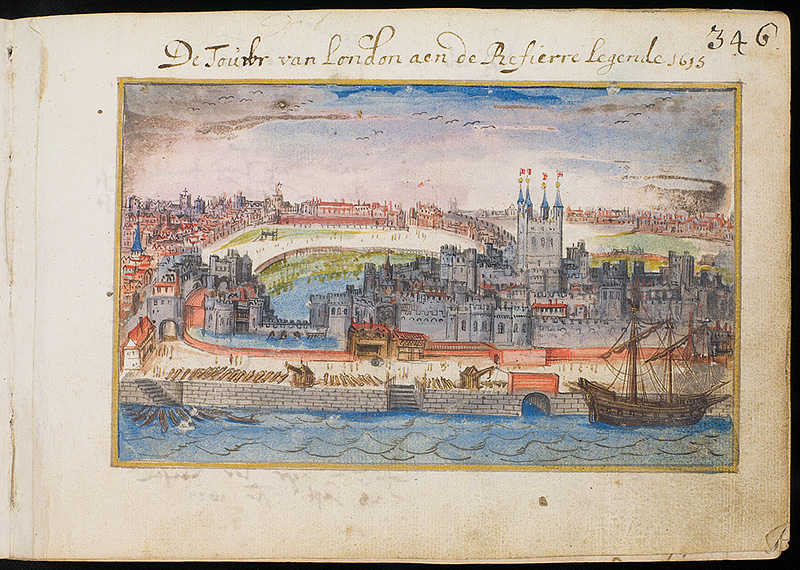 De Tour van London aen de Refierre legende 1615
346